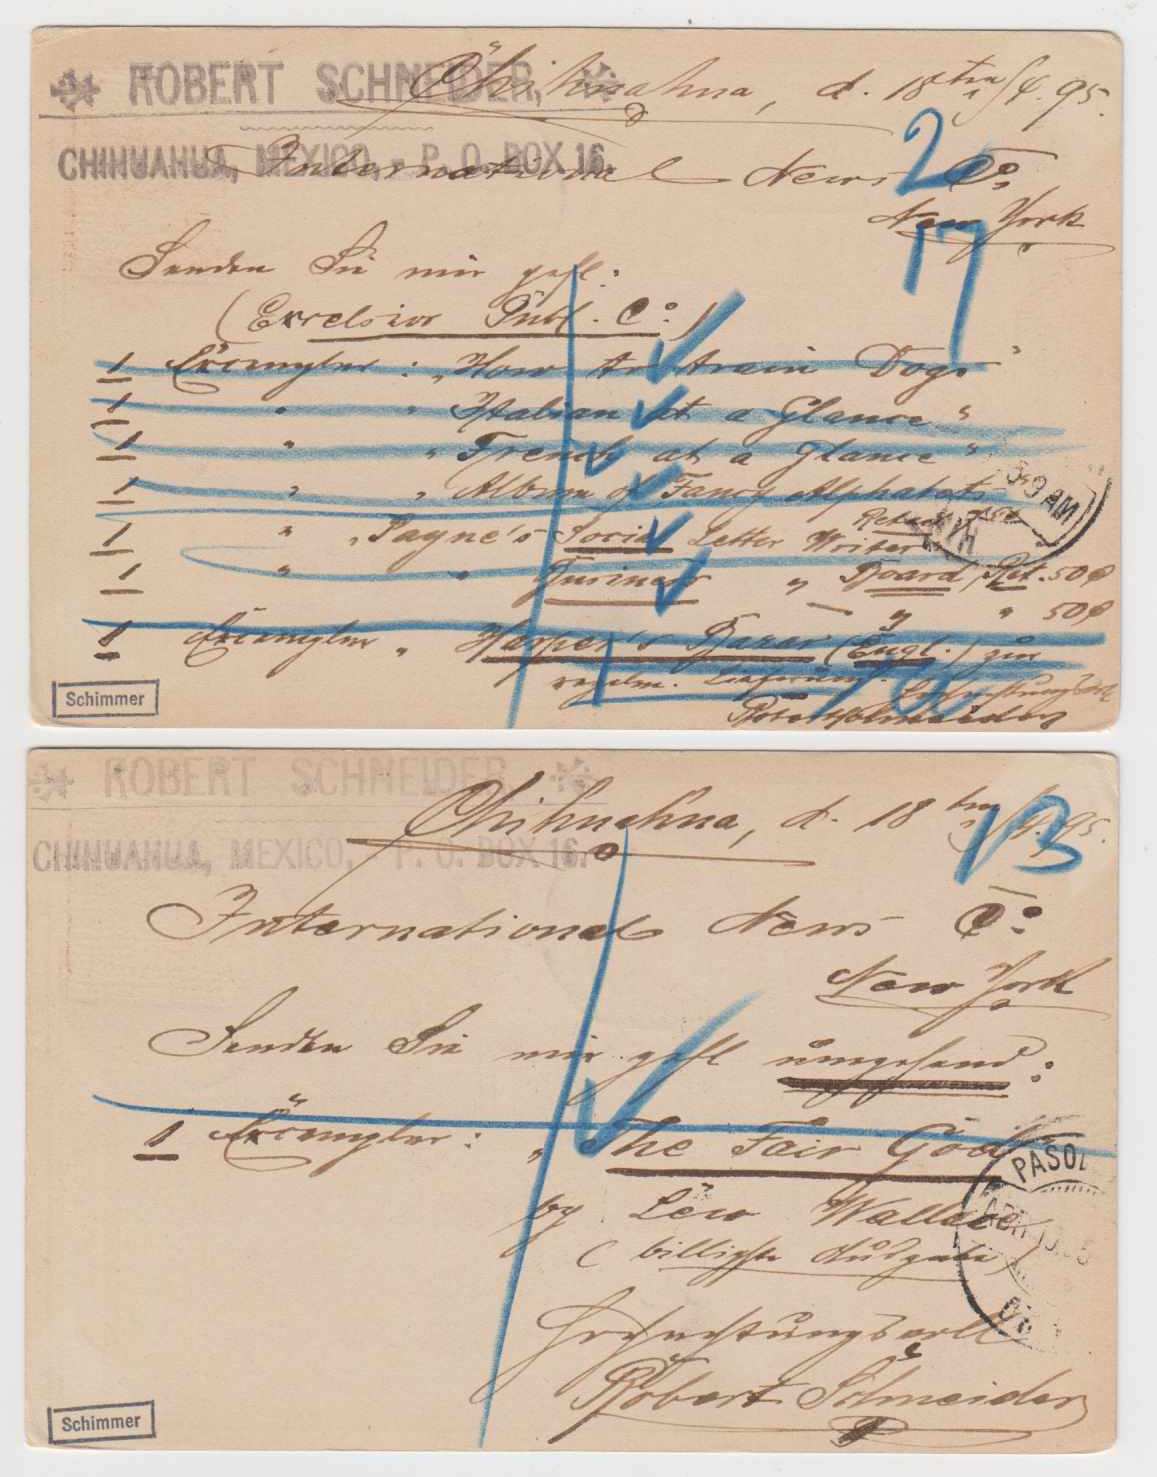 ROBERT SCHNEIDER,
CHIHUAHUA, MEXICO, - P. O. BOX 16.
Chihuahua, d. 18ten/4. 95.
International News Co.
New York
2
17
Senden Sie mir gefl:
(Excelsior Publ. Co:)
1 Exemplar: "How to train Dogs"
1 " " Italian at a Glance"
1 " " French at a Glance"
1 " " Album of Fancy Alphabets
1 " " Payne's Social Letter Writer
1 " " Business " Board, Ret. 50¢
" " 50¢
1 Exemplar " Harper's Bazar (Engl.) zur
regelm. Lieferung. Hochachtungsvoll
Robert Schneider
3 AM
Schimmer
ROBERT SCHNEIDER,
CHIHUAHUA, MEXICO, - P. O. BOX 16.
Chihuahua, d. 18ten/4. 95.
13
International News Co:
New York
Senden Sie mir gefl umgehend:
1 Exemplar: "The Fair God"
by Lew Wallace
(billigste Ausgabe)
Hochachtungsvoll
Robert Schneider
PASO
ABR
Schimmer